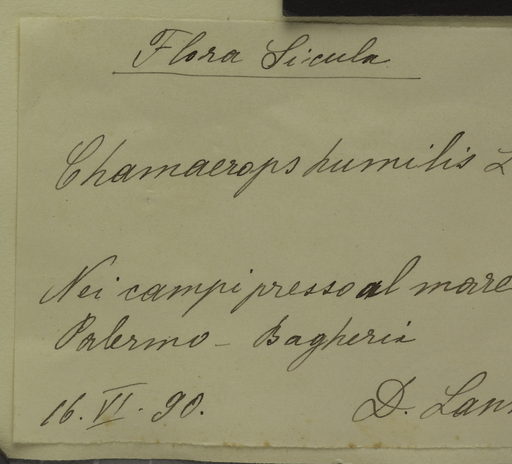 Flora Sicula
Chamaerops humilis L
Nei campi presso al mare
Palermo - Bagheria
16. VI. 90.
D. Lan